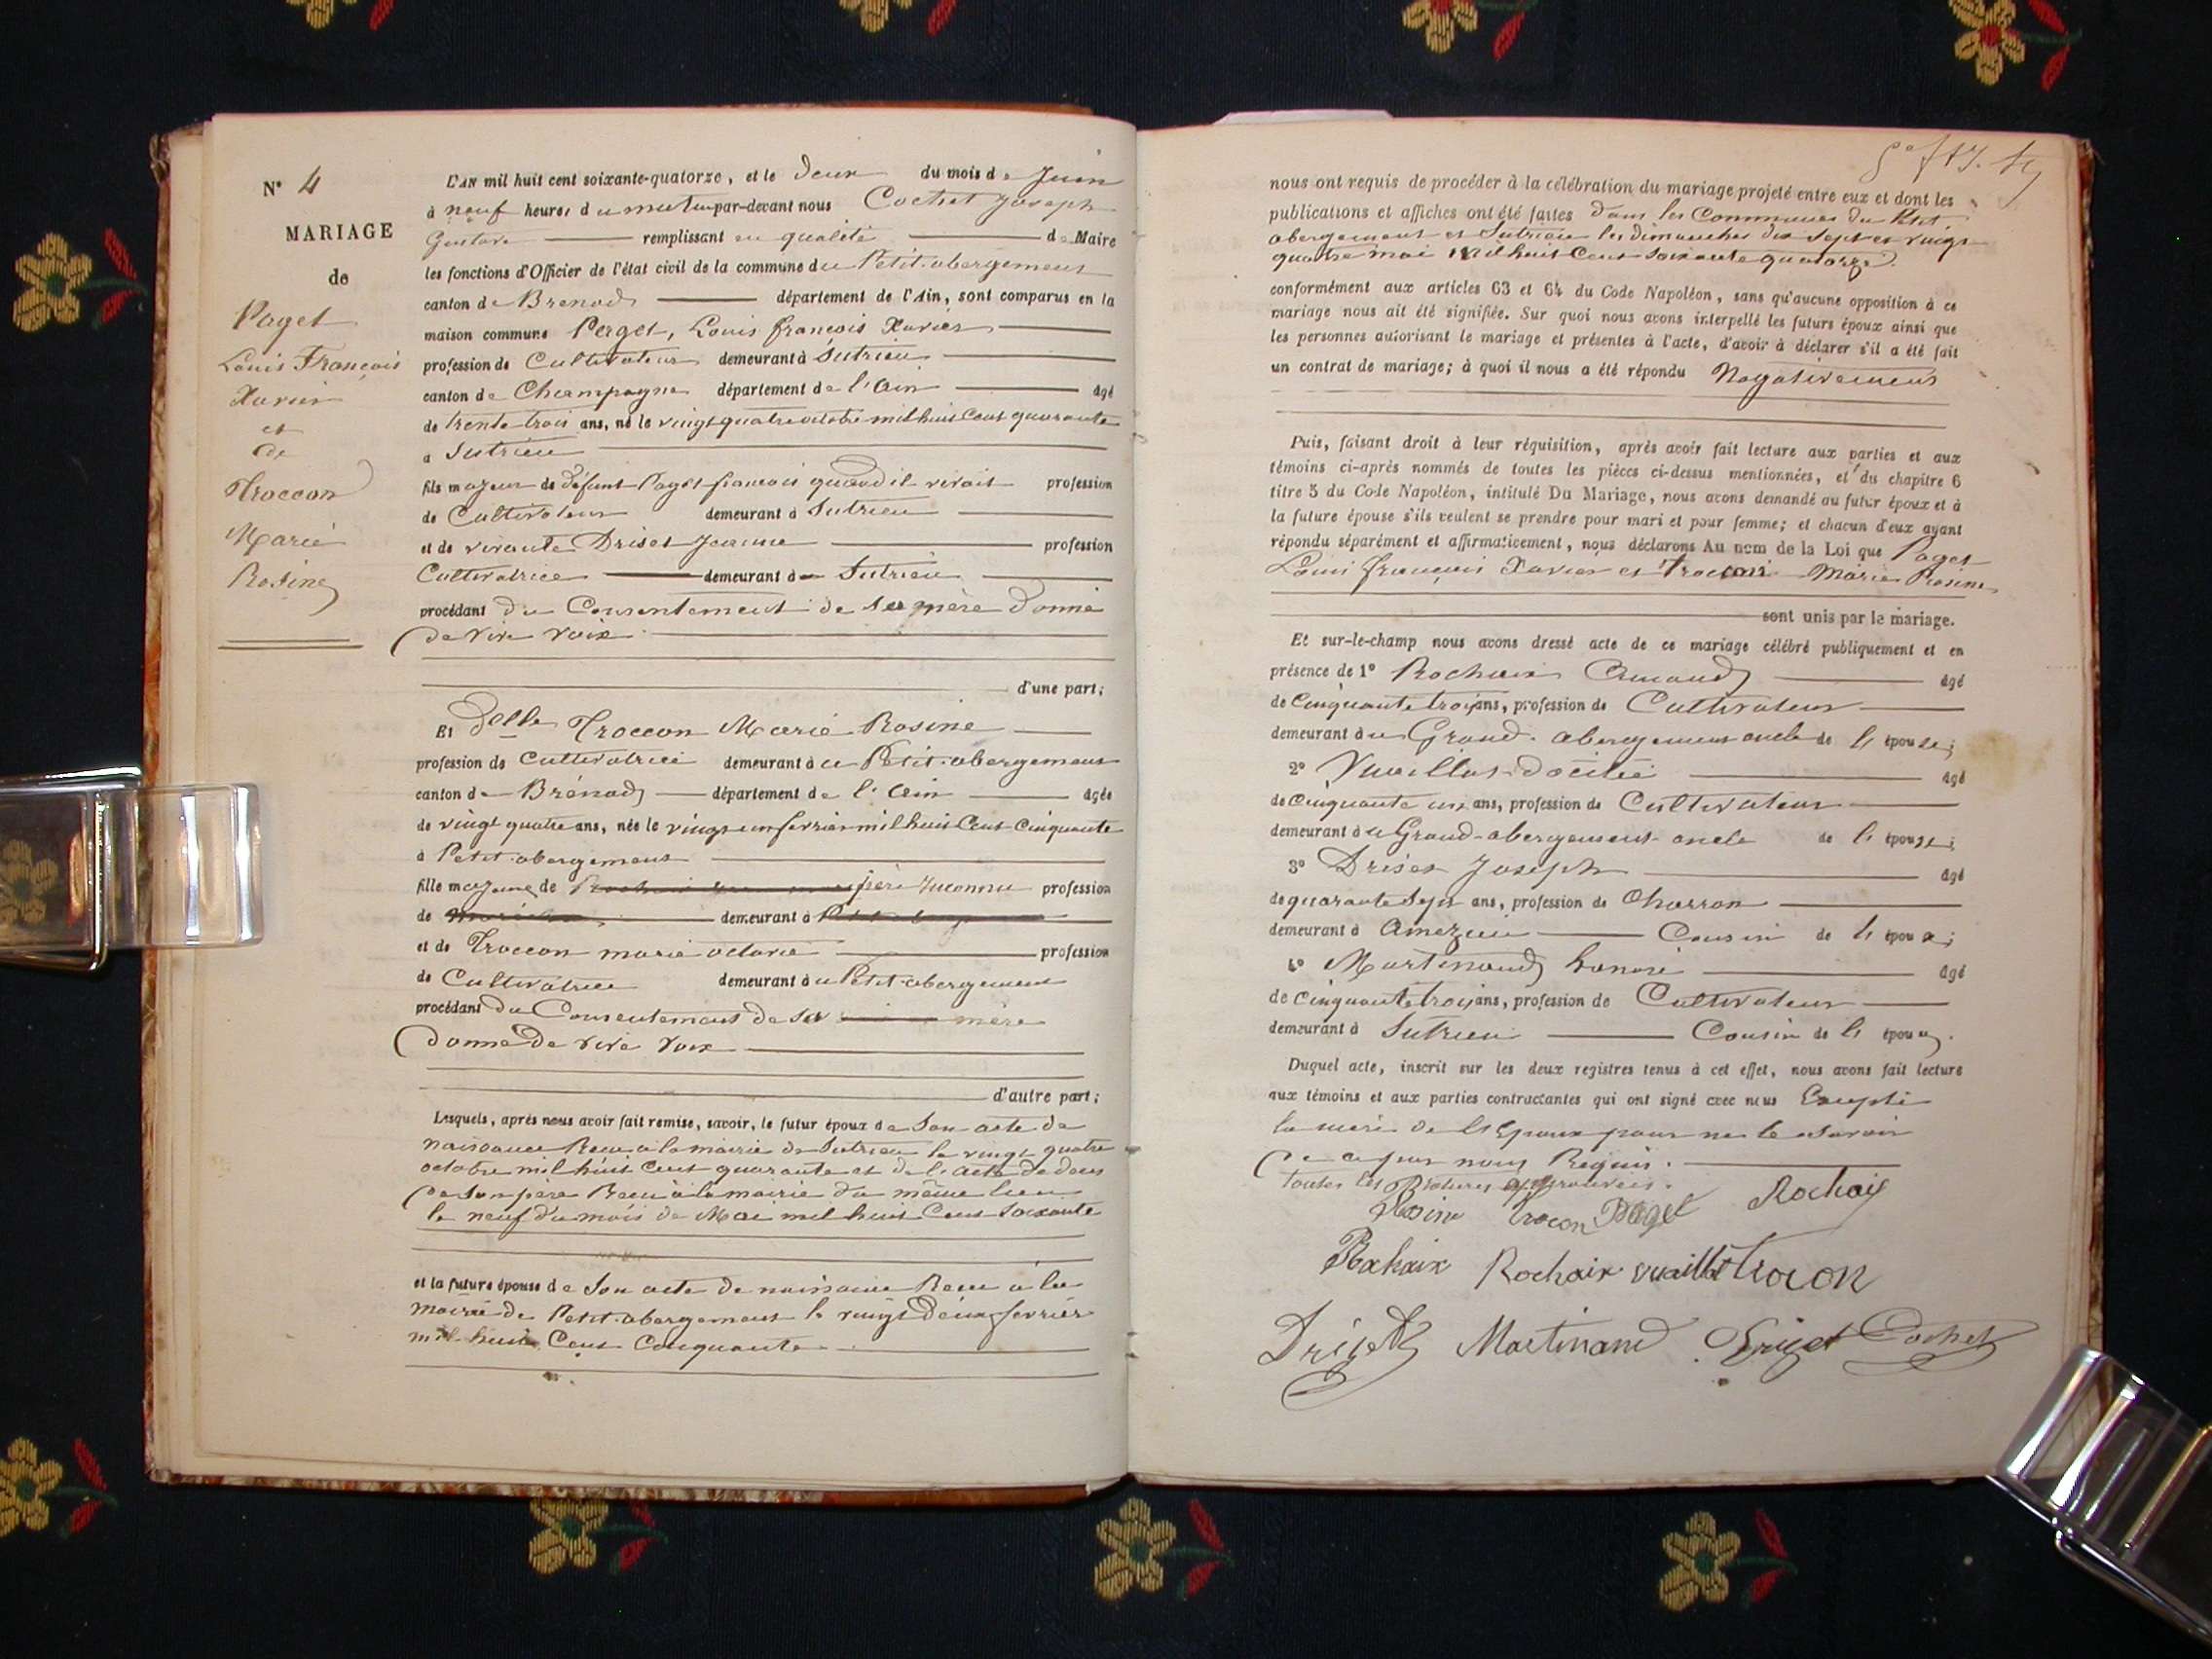 N° 4
MARIAGE
de
Paget
Louis François
Xavier
et
de
Troccon
Marie
Rosine
L'AN mil huit cent soixante-quatorze, et le deux du mois de Juin
à neuf heures du matin par-devant nous Cochet Joseph
Gustave remplissant en qualité de Maire
les fonctions d'Officier de l'état civil de la commune du Petit-abergement
canton de Brenod département de l'Ain, sont comparus en la
maison commune Paget, Louis françois Xavier
profession de Cultivateur demeurant à Sutrieu
canton de Champagne département de l'Ain âgé
de trente trois ans, né le vingt quatre octobre mil huit Cent quarante
à Sutrieu
fils majeur de défunt Paget françois quand il vivait profession
de Cultivateur demeurant à Sutrieu
et de vivante Driset Jeanne profession
Cultivatrice demeurant à Sutrieu
procédant du Consentement de sa mère donné
de vive voix
d'une part;
Et Delle Troccon Marie Rosine
profession de Cultivatrice demeurant à u Petit-abergement
canton de Brénod département de l'Ain âgée
de vingt quatre ans, née le vingt un février mil huit Cent Cinquante
à Petit-abergement
fille majeure de père Inconnu profession
de demeurant à
et de Troccon marie octavie profession
de Cultivatrice demeurant à u Petit-abergement
procédant du Consentement de sa mère
donné de vive voix
d'autre part;
Lesquels, après nous avoir fait remise, savoir, le futur époux de Son acte de
naissance Recu à la mairie de Sutrieu le vingt quatre
octobre mil huit Cent quarante et de l'acte de deces
de Son père Recu à la mairie du même lieu
le neuf du mois de Mai mil huit Cent Soixante
et la future épouse de Son acte de naissance Recu à la
mairie de Petit-abergement le vingt deux fevrier
mil huit Cent Cinquante
nous ont requis de procéder à la célébration du mariage projeté entre eux et dont les
publications et affiches ont été faites dans les Communes du Petit
abergement et Sutrieu les dimanches dix Sept et vingt
quatre mai Mil huit Cent Soixante quatorze.
conformément aux articles 63 et 64 du Code Napoléon, sans qu'aucune opposition à ce
mariage nous ait été signifiée. Sur quoi nous avons interpellé les futurs époux ainsi que
les personnes autorisant le mariage et présentes à l'acte, d'avoir à déclarer s'il a été fait
un contrat de mariage; à quoi il nous a été répondu Négativement
Puis, faisant droit à leur réquisition, après avoir fait lecture aux parties et aux
témoins ci-après nommés de toutes les pièces ci-dessus mentionnées, et du chapitre 6
titre 5 du Code Napoléon, intitulé Du Mariage, nous avons demandé au futur époux et à
la future épouse s'ils veulent se prendre pour mari et pour femme; et chacun d'eux ayant
répondu séparément et affirmativement, nous déclarons Au nom de la Loi que Paget
Louis françois Xavier et Troccon Marie Rosine
sont unis par le mariage.
Et sur-le-champ nous avons dressé acte de ce mariage célébré publiquement et en
présence de 1° Rochaix Amand âgé
de Cinquante trois ans, profession de Cultivateur
demeurant à u Grand-abergement oncle de l'épouse;
2° Vuaillat docile âgé
de Cinquante un ans, profession de Cultivateur
demeurant à u Grand-abergement oncle de l'épouse;
3° Driset Joseph âgé
de quarante Sept ans, profession de Charron
demeurant à Amezieu Cousin de l'époux;
4° Martinand honoré âgé
de Cinquante trois ans, profession de Cultivateur
demeurant à Sutrieu Cousin de l'époux.
Duquel acte, inscrit sur les deux registres tenus à cet effet, nous avons fait lecture
aux témoins et aux parties contractantes qui ont signé avec nous Excepté
la mère de l'Epoux pour ne le savoir
de ce par nous Requis.
toutes les Ratures approuvées.
Rosine Trocon Paget Rochaix
Rochaix Rochaix vuaillat trocon
Driset Martinand Driset Cochet